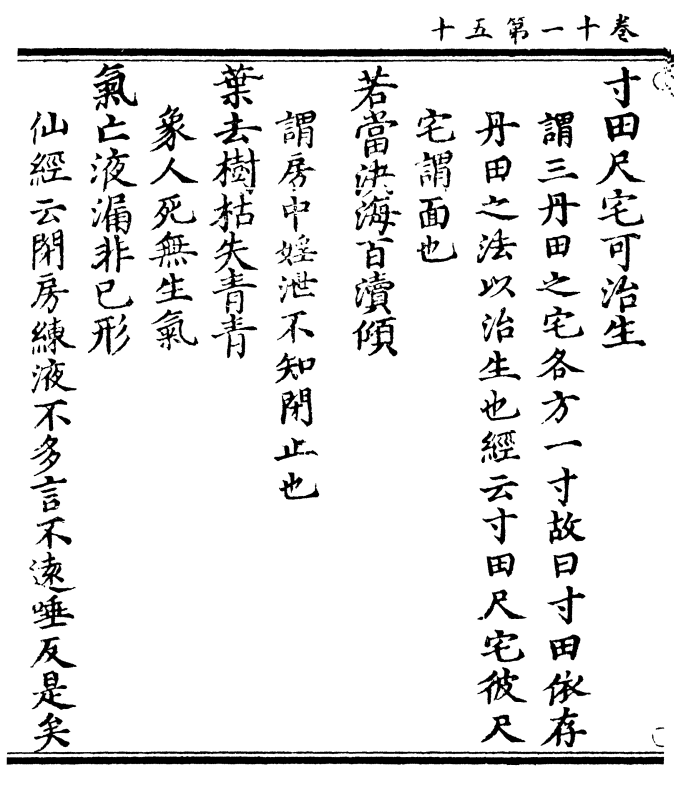 卷十一第五十
寸田尺宅可治生
謂三丹田之宅各方一寸故曰寸田依存
丹田之法以治生也經云寸田尺宅彼尺
宅謂面也
若當決海百瀆傾
謂房中婬泄不知閉止也
葉去樹枯失青青
象人死無生氣
氣亡液漏非已形
仙經云閉房練液不多言不遠唾反是矣